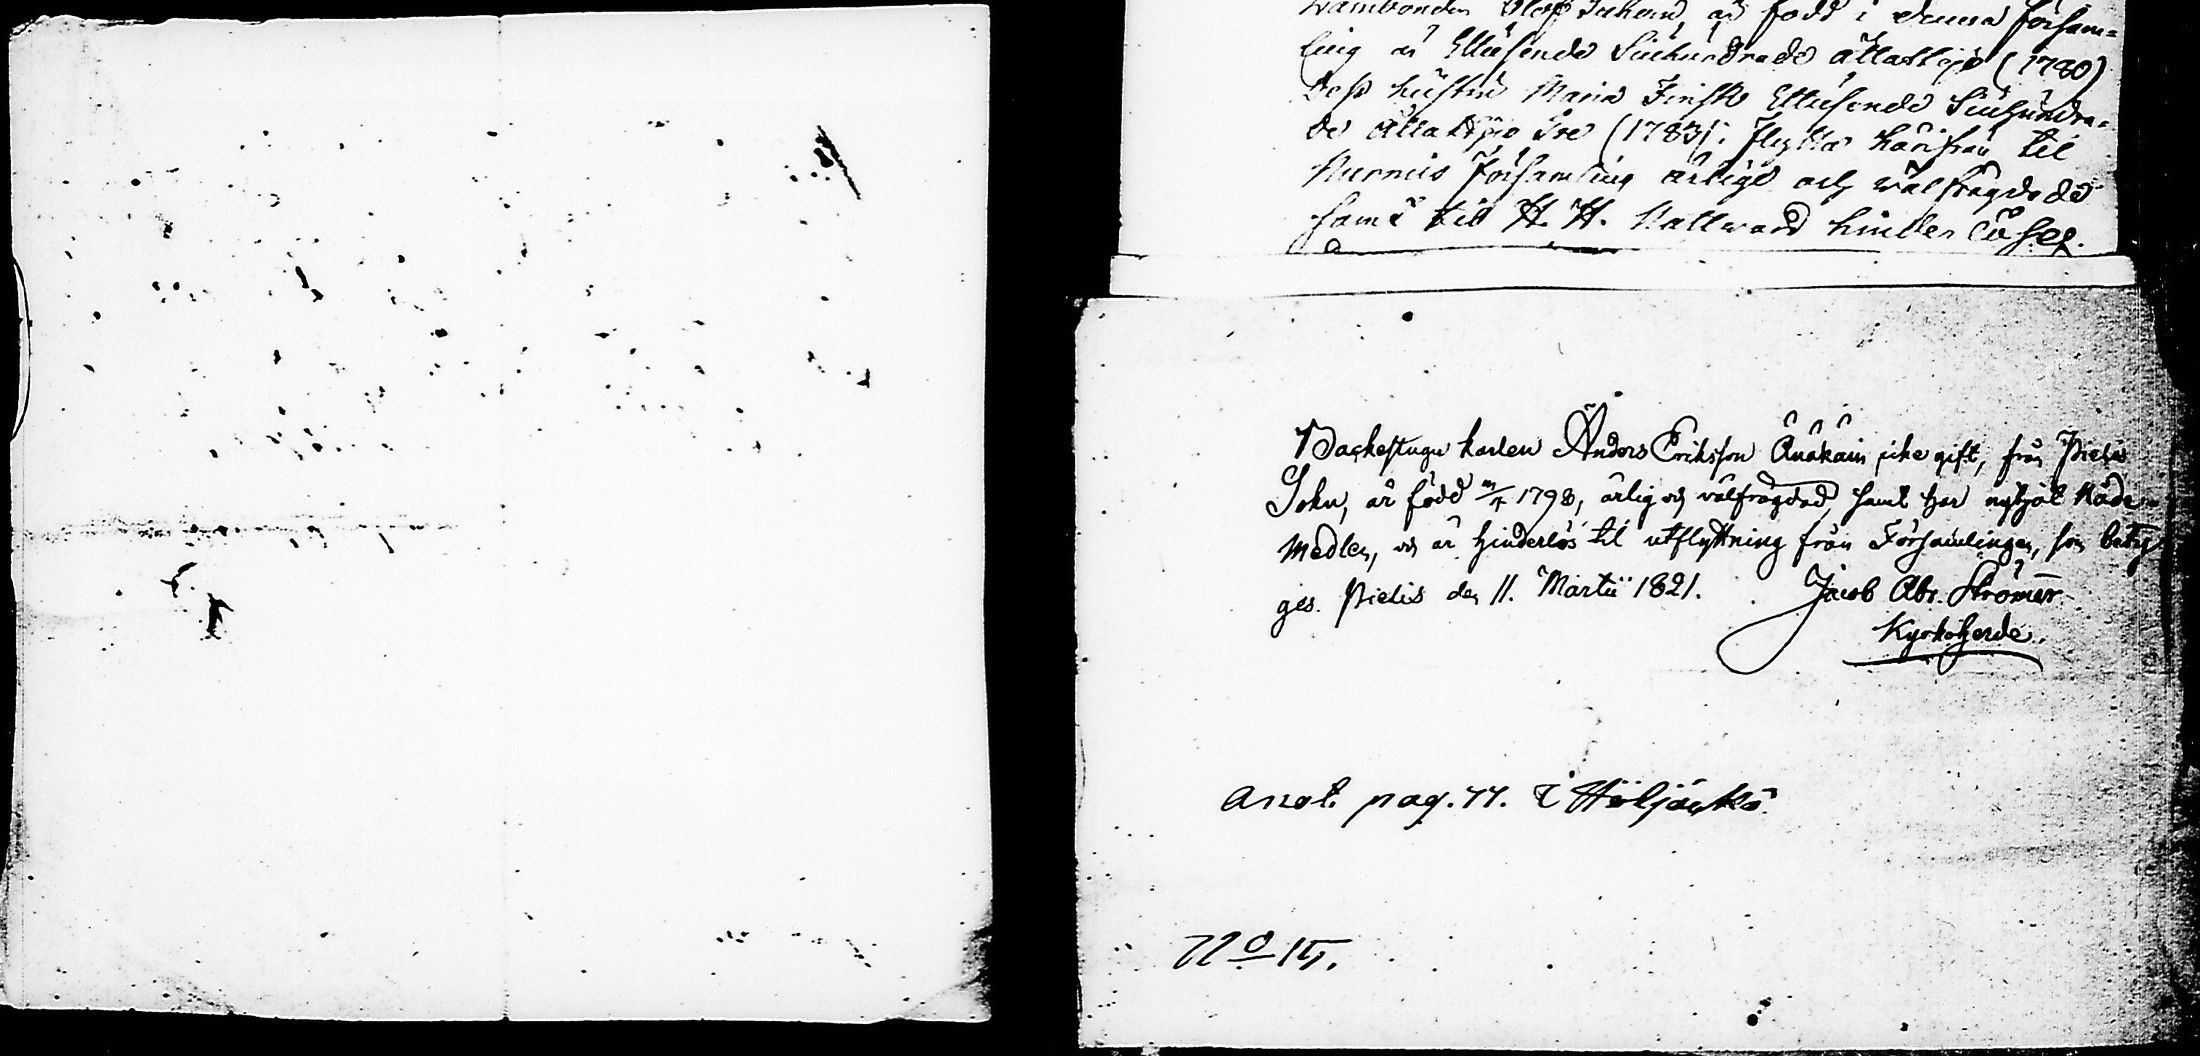 Olof Juhoin, är född i denna försam=
ling år Ettusende Siuhundrade åttatijo (1780)
Dess hustru Maria Finsk Ettusende Siuhundra=
de Åttatijo tre (1783), flyttar härifrån til
Nurmis Församling ärlige och välfrägdade
samt til H. H. Nattward hinder löse.
Backestugu karlen Anders Eriksson Änäkäin icke gift, från Pielis
Sokn, är född 1798, ärlig och välfrägdad, samt har nytjat Nåde-
medlen, och är hinderlös til utflyttning från Församlingen, som bety-
ges. Pielis den 11. Martii 1821. Jacob Abr. Strömer.
Kyrkoherde.
Anot. pag. 77. i Höljäckä.
No 15.